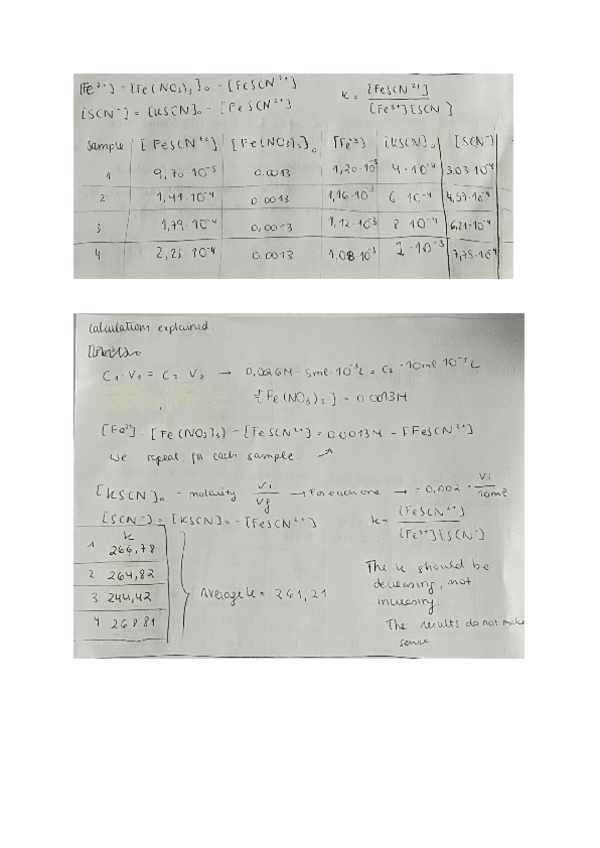 [Fe³⁺] = [Fe(NO₃)₃]₀ - [FeSCN²⁺]
[SCN⁻] = [KSCN]₀ - [FeSCN²⁺]
K = [FeSCN²⁺] / [Fe³⁺][SCN]
Sample [FeSCN⁺²] [Fe(NO₃)₃]₀ [Fe⁺³] [KSCN]₀ [SCN⁻]
1 9,70·10⁻⁵ 0.0013 1,20·10⁻³ 4·10⁻⁴ 3,03·10⁻⁴
2 1,41·10⁻⁴ 0.0013 1,16·10⁻³ 6·10⁻⁴ 4,59·10⁻⁴
3 1,79·10⁻⁴ 0,0013 1,12·10⁻³ 8 10⁻⁴ 6,21·10⁻⁴
4 2,25·10⁻⁴ 0.0013 1,08·10⁻³ 1·10⁻³ 7,75·10⁻⁴
Calculations explained
C₁·V₁ = C₂·V₂ → 0,0026M · 5ml·10⁻³L = C₂·10ml·10⁻³L
[Fe(NO₃)₃] = 0.0013M
[Fe³⁺] = [Fe(NO₃)₃] - [FeSCN²⁺] = 0.0013M - [FeSCN²⁺]
We repeat for each sample
[KSCN]₀ = molarity Vi/Vf → For each one → = 0,002 · Vi/10ml
[SCN⁻] = [KSCN]₀ - [FeSCN²⁺]
K = [FeSCN²⁺] / [Fe³⁺][SCN⁻]
K
1 266,78
2 264,82
3 244,42
4 268 81
Average K = 261,21
The K should be
decreasing, not
increasing.
The results do not make
sense